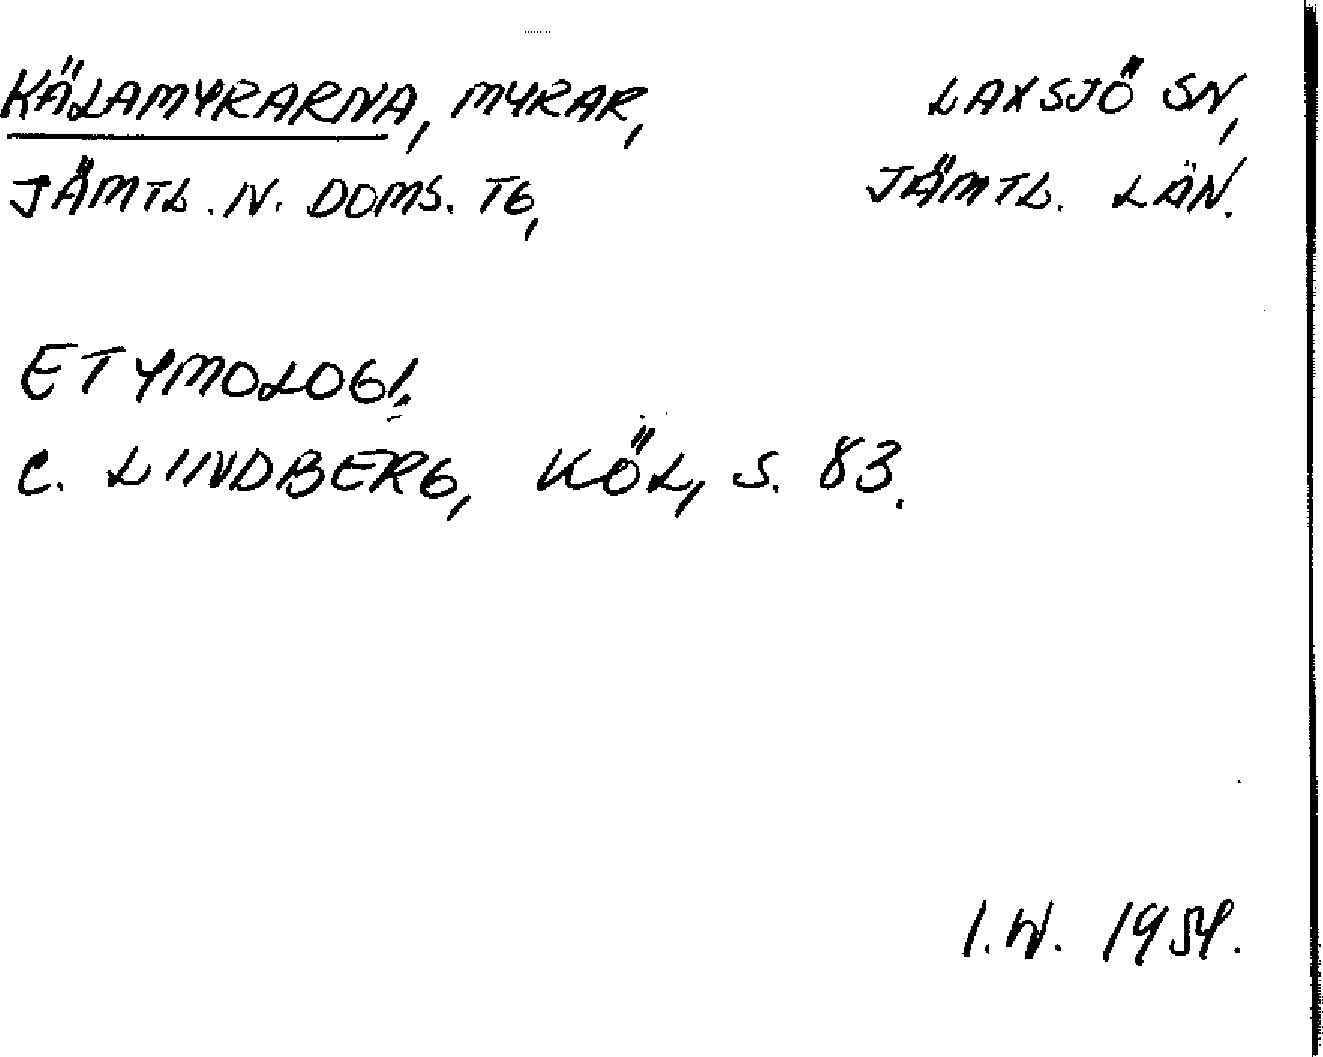 KÄLAMYRARNA, MYRAR, LAXSJÖ SN,
JÄMTL. N. DOMS. TG, JÄMTL. LÄN.
ETYMOLOGI.
C. LINDBERG, KÖL, S. 83.
I.W. 1954.